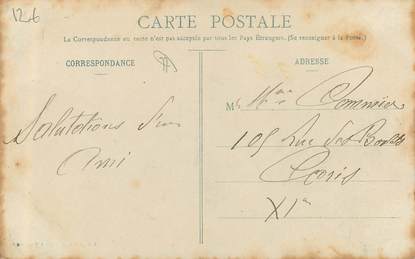 126
CARTE POSTALE
La Correspondance au recto n'est pas acceptée par tous les Pays Étrangers. (Se renseigner à la Poste).
CORRESPONDANCE
ADRESSE
Salutations d'un
Ami
M
105 Rue des
Paris
XIe